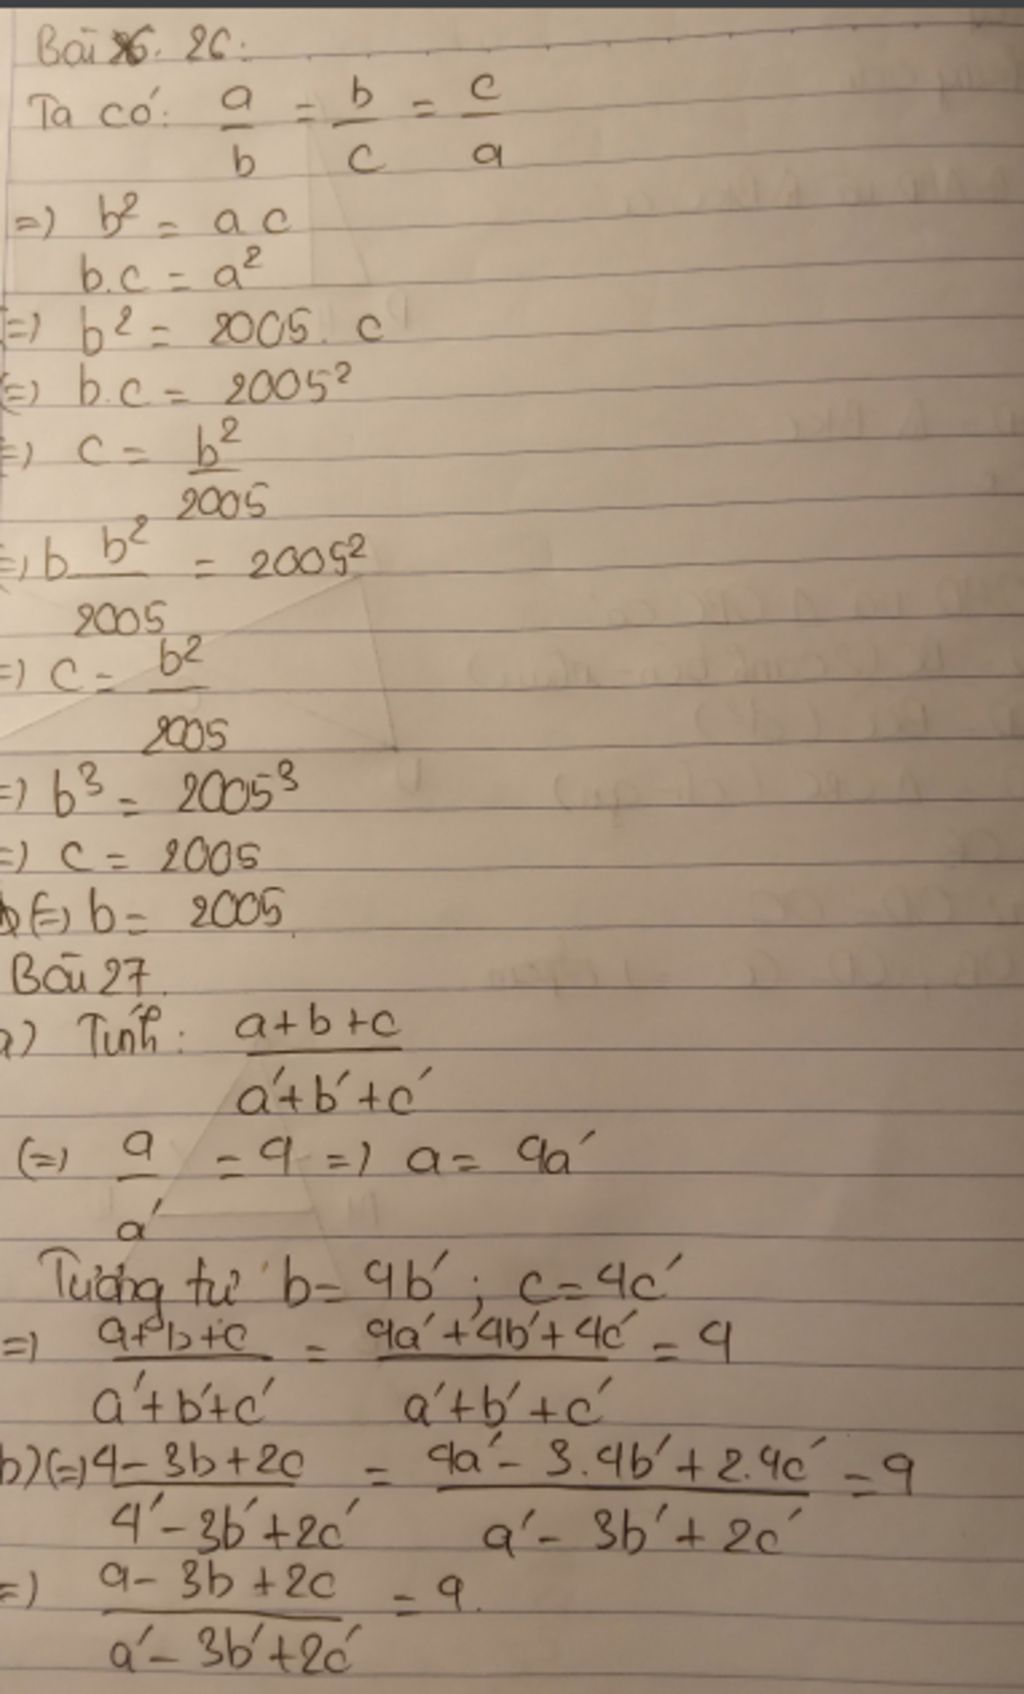 Bài 26:
Ta có: a/b = b/c = c/a
=) b² = a c
b.c = a²
=) b² = 2005. c
(=) b.c = 2005²
=) c = b²/2005
=) b b²/2005 = 2005²
=) c = b²/2005
=) b³ = 2005³
=) c = 2005
(=) b = 2005
Bài 27.
a) Tính: a+b+c/a'+b'+c'
(=) a/a' = 4 =) a = 4a'
Tương tự b = 4b' ; c = 4c'
=) a+b+c/a'+b'+c' = 4a'+4b'+4c'/a'+b'+c' = 4
b) (=) a-3b+2c/a'-3b'+2c' = 4a'-3.4b'+2.4c'/a'-3b'+2c' = 4
=) a-3b+2c/a'-3b'+2c' = 4.